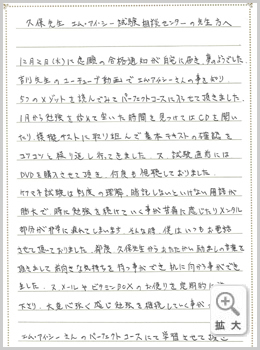 久保先生 エム・アイ・シー試験相談センターの先生方へ
12月2日(木)に念願の合格通知が自宅に届き、夢のようでした
先生のユーチューブ動画でエム・アイ・シーさんの事を知り
5つのメソッドを読んでみてパーフェクトコースに
1月から勉強を始めて空いた時間を見つけてはCDを聞い
たり、模擬テストに取り組んで基本テキストの確認を
コツコツと繰り返し行ってきました。又、試験直前には
DVDを購入させて頂き、何度も視聴しておりました。
ケアマネ試験は制度の理解、暗記しないといけない用語が
膨大で、時に勉強を続けていく事が苦痛に感じたりメンタル
部分が非常に乱れてしまいます。そんな時、僕はいつもお電話
させて頂いておりました。都度、久保先生からあたたかい励ましの言葉を
頂きまして前向きな気持ちを持つ事ができ、机に向かう事ができ
ました。又、メールやビタミンBOXのお便りを定期的に
下さり、大変心強く感じ勉強を継続していく事が
エム・アイ・シーさんのパーフェクトコースにて学習させて頂き
拡大